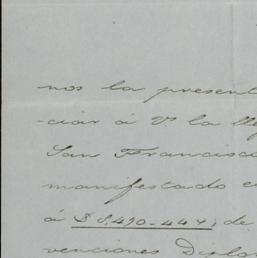 nos la present
-ciar á Vs la lle
San Francisco
manifestado e
á $ 8,490-447; de
venciones Diplo